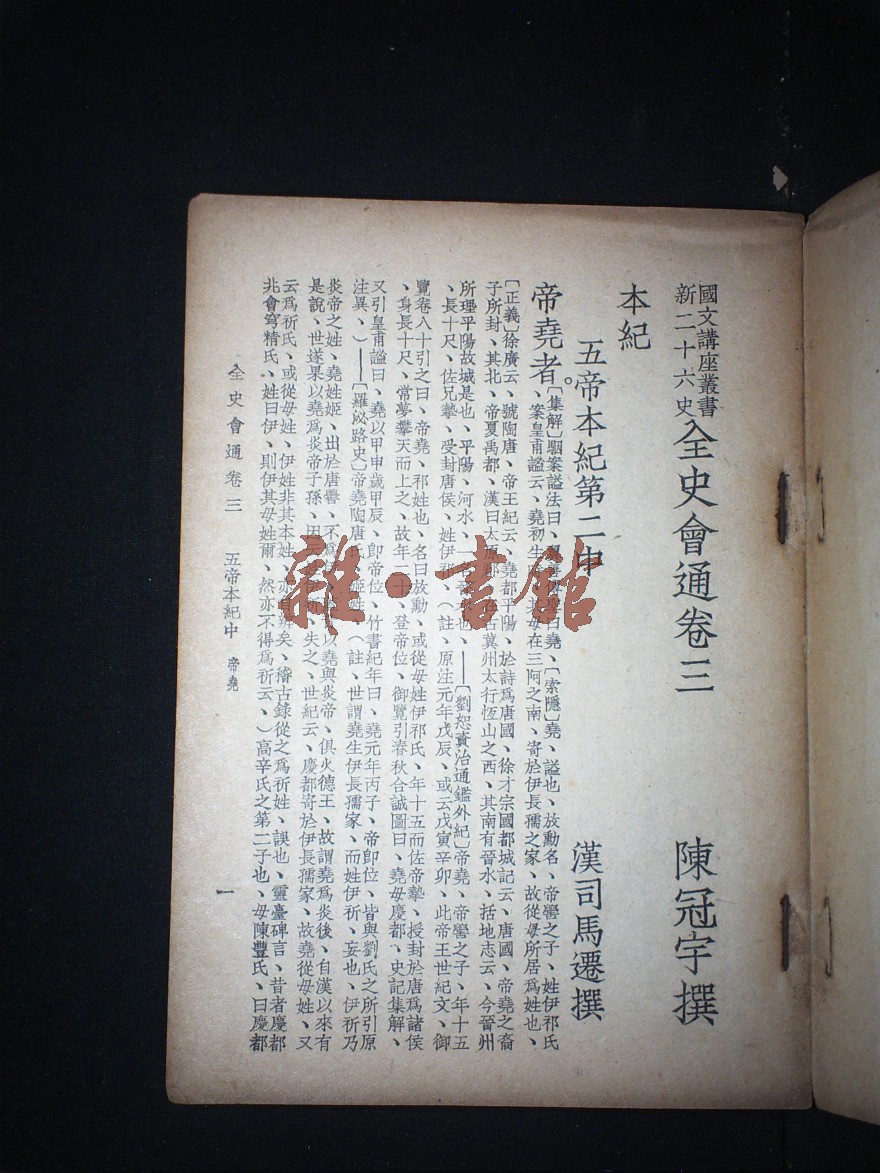 國文講座叢書
新二十六史
全史會通卷三
陳冠宇撰
本紀
五帝本紀第二中
漢司馬遷撰
帝堯者。
〔集解〕駰案諡法曰、翼善傳聖曰堯、〔索隱〕堯、諡也、放勳名、帝嚳之子、姓伊祁氏
、案皇甫謐云、堯初生時、其母在三阿之南、寄於伊長孺之家、故從母所居爲姓也、
〔正義〕徐廣云、號陶唐、帝王紀云、堯都平陽、於詩爲唐國、徐才宗國都城記云、唐國、帝堯之裔
子所封、其北、帝夏禹都、漢曰太原郡、在古冀州太行恆山之西、其南有晉水、括地志云、今晉州
所理平陽故城是也、平陽、河水、一名晉水也、——〔劉恕資治通鑑外紀〕帝堯、帝嚳之子、年十五
、長十尺、佐兄摯、受封唐侯、姓伊祁、（註、原注元年戊辰、或云戊寅辛卯、此帝王世紀文、御
覽卷八十引之曰、帝堯、祁姓也、名曰放勳、或從母姓伊祁氏、年十五而佐帝摯、授封於唐爲諸侯
、身長十尺、常夢攀天而上之、故年二十、登帝位、御覽引春秋合誠圖曰、堯母慶都、史記集解、
又引皇甫謐曰、堯以甲申歲甲辰、卽帝位、竹書紀年曰、堯元年丙子、帝卽位、皆與劉氏之所引原
注異、）——〔羅泌路史〕帝堯陶唐氏、姬姓、（註、世謂堯生伊長孺家、而姓伊祈、妄也、伊祈乃
炎帝之姓、堯姓姬、出於唐嚳、不爲以堯與炎帝、俱火德王、故謂堯爲炎後、自漢以來有
是說、世遂果以堯爲炎帝子孫、因云姓伊祈、失之、世紀云、慶都寄於伊長孺家、故堯從母姓、又
云爲祈氏、或從母姓、伊姓非其本姓、亦自辨矣、稽古錄從之爲祈姓、誤也、靈臺碑言、昔者慶都
北會窮精氏、姓曰伊、則伊其母姓爾、然亦不得爲祈云、）高辛氏之第二子也、母陳豐氏、曰慶都
全史會通卷三 五帝本紀中 帝堯
一
雜·書館